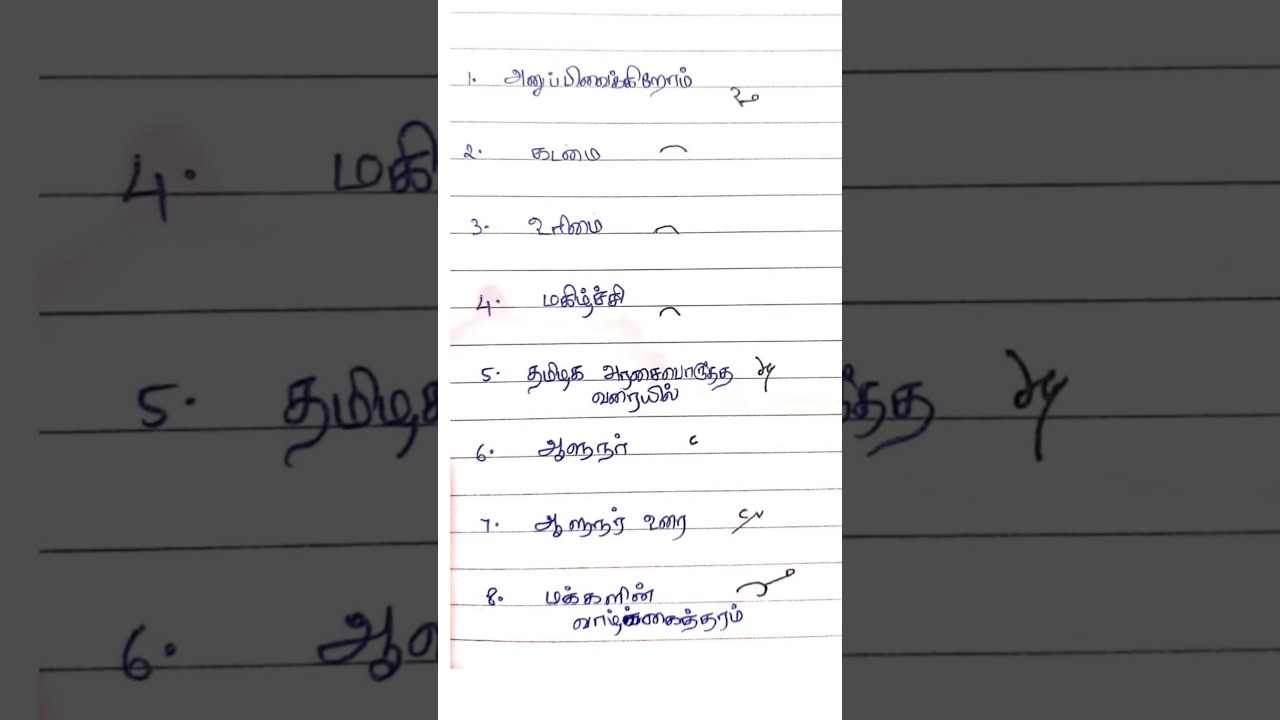 1. அனுப்பிவைக்கிறோம்
2. கடமை
3. உரிமை
4. மகிழ்ச்சி
5. தமிழக அரசைபொருத்த
வரையில்
6. ஆளுநர்
7. ஆளுநர் உரை
8. மக்களின்
வாழ்க்கைத்தரம்